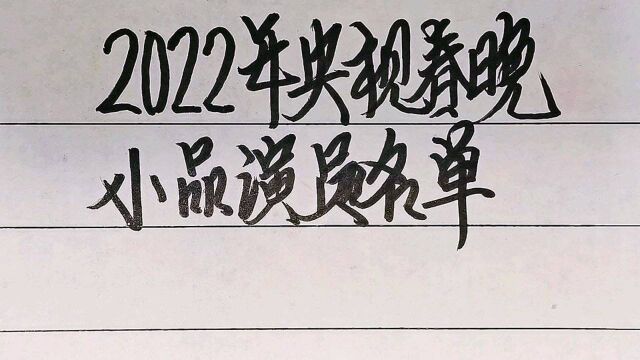 2022年央视春晚
小品演员名单